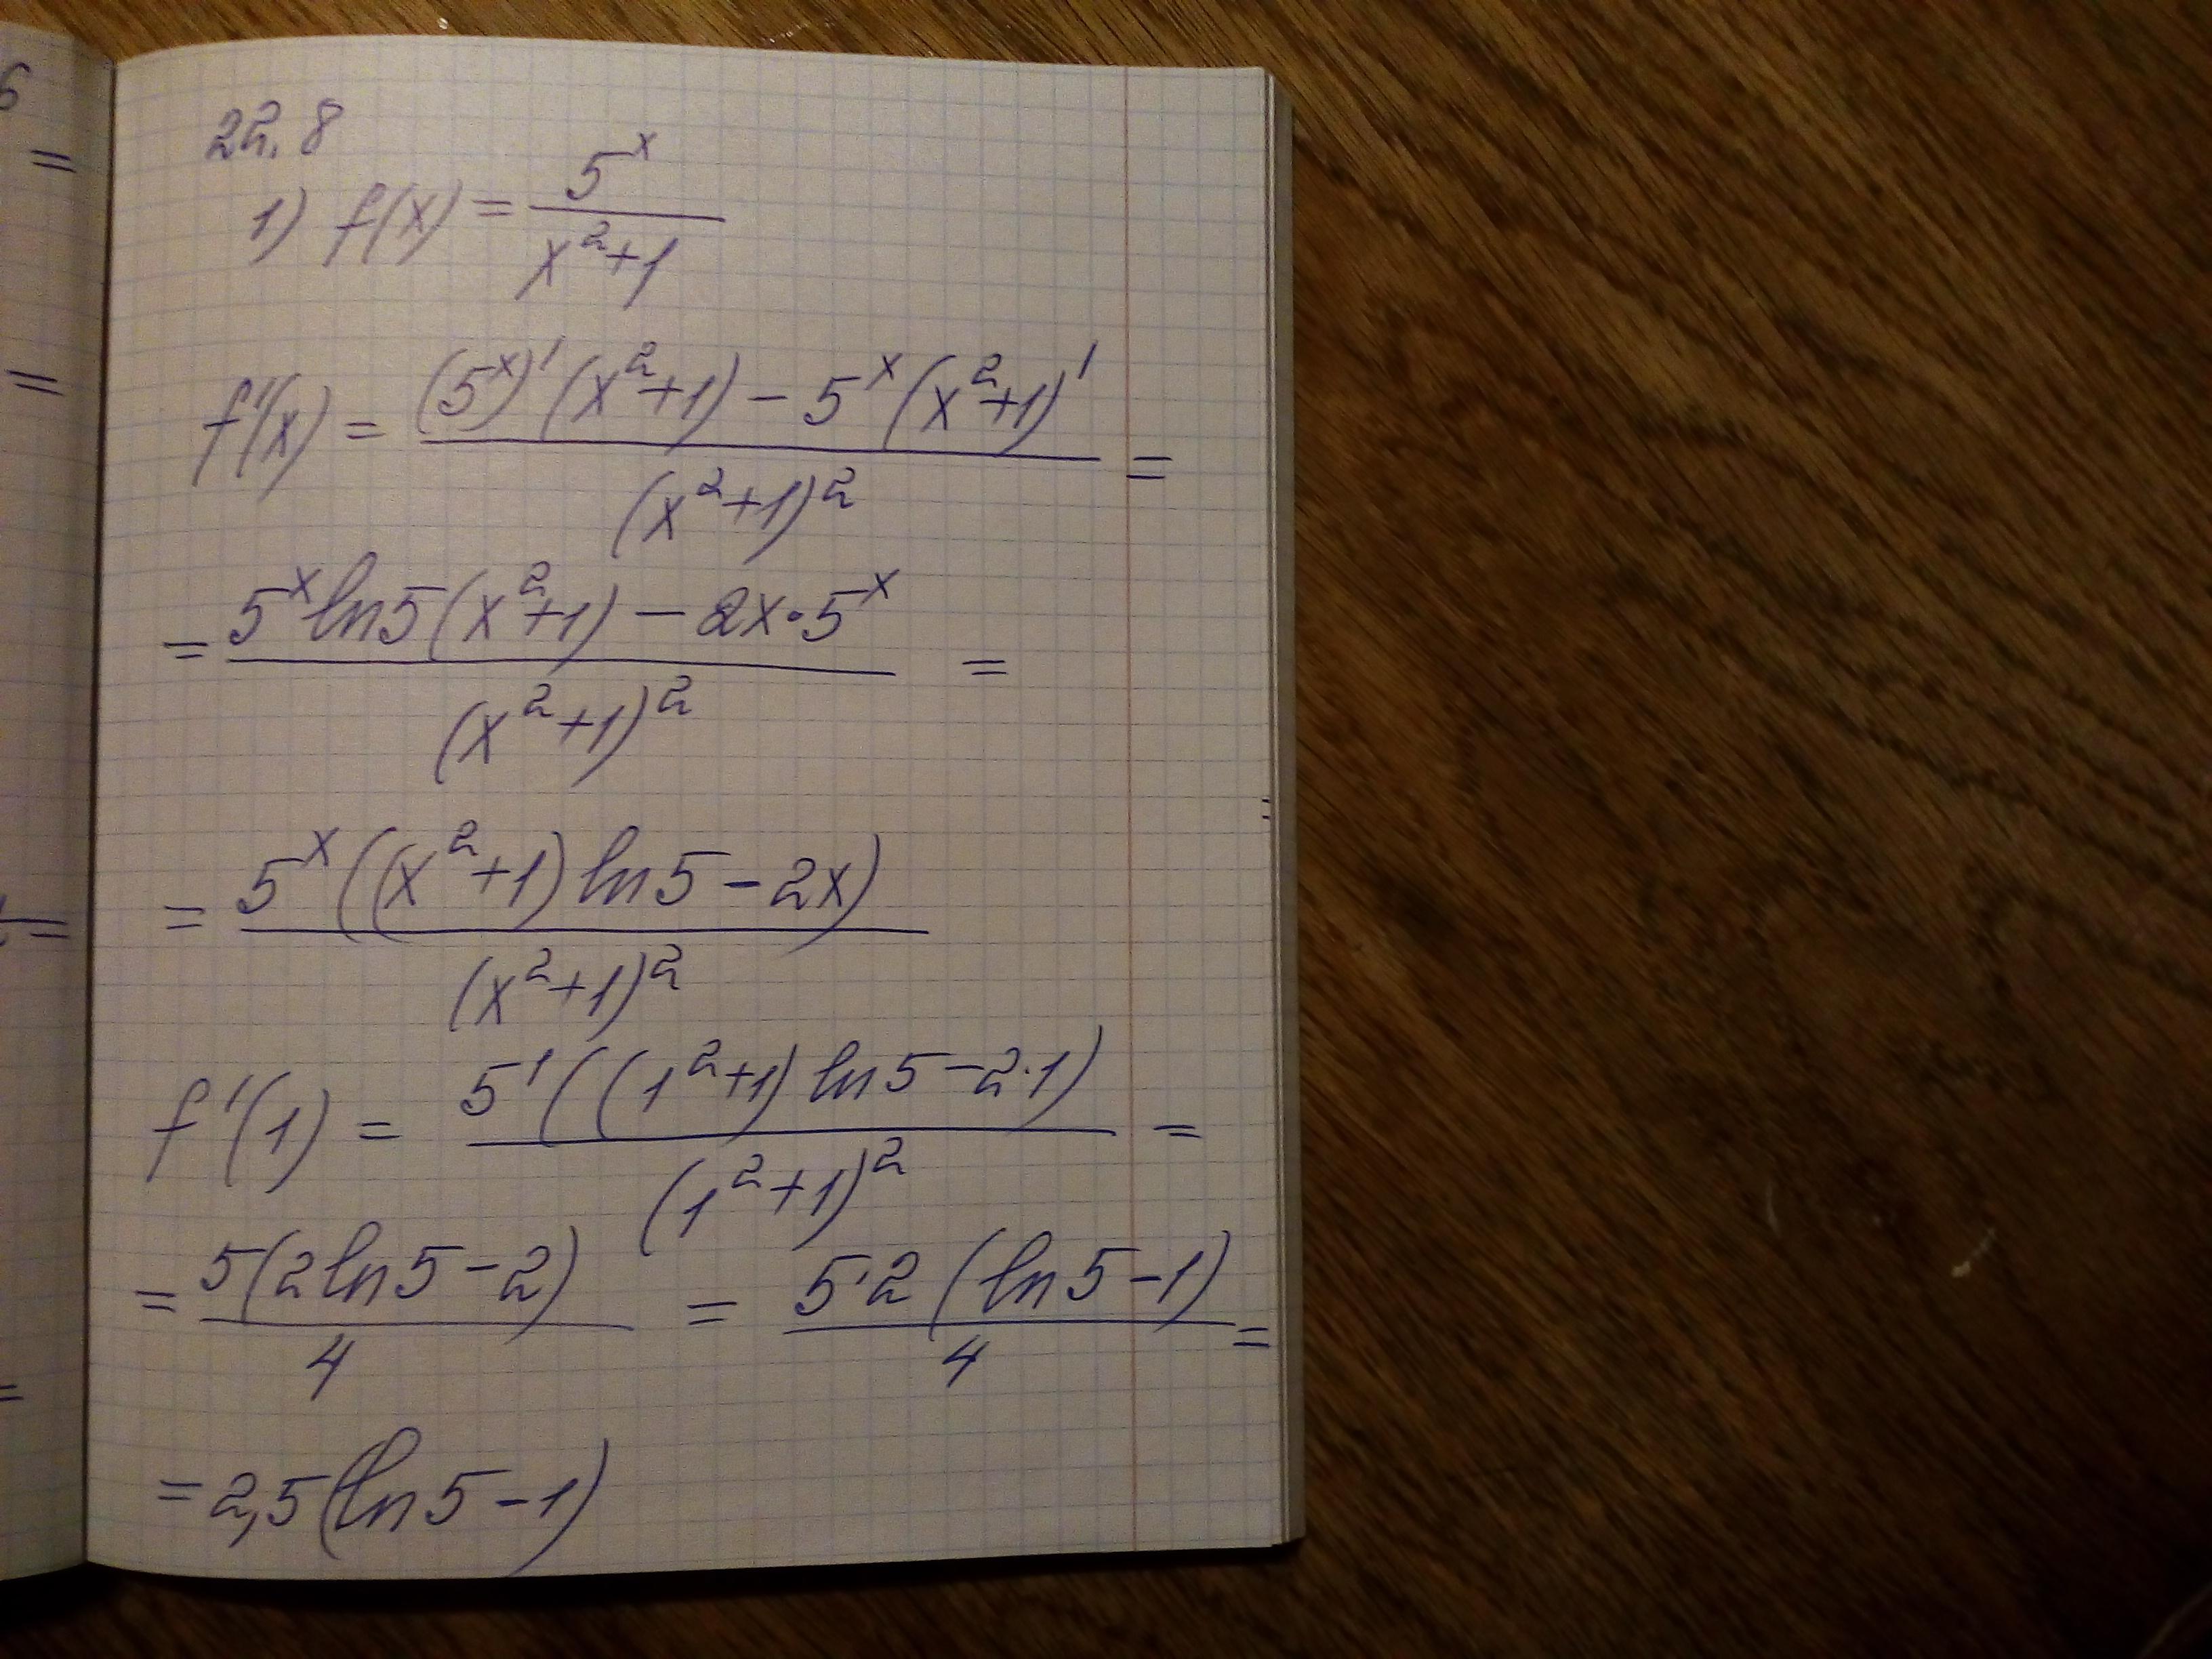 22.8
1) f(x) = 5^x / (x^2+1)
f'(x) = ((5^x)'(x^2+1) - 5^x(x^2+1)') / (x^2+1)^2 =
= (5^x ln5(x^2+1) - 2x·5^x) / (x^2+1)^2 =
= 5^x((x^2+1)ln5 - 2x) / (x^2+1)^2
f'(1) = 5^1((1^2+1)ln5 - 2·1) / (1^2+1)^2 =
= 5(2ln5 - 2) / 4 = 5·2(ln5 - 1) / 4 =
= 2,5(ln5 - 1)